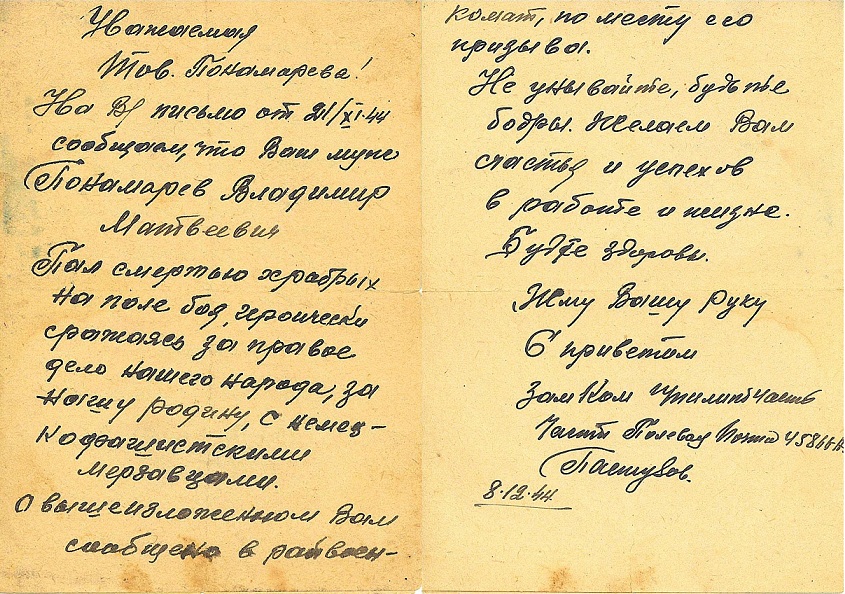 Уважаемая
Тов. Понамарева!
На В/ письмо от 21/XI.44
сообщаем, что Ваш муж
Понамарев Владимир
Матвеевич
Пал смертью храбрых
на поле боя, героически
сражаясь за правое
дело нашего народа, за
нашу родину, с немец-
кофашистскими
мерзавцами.
О вышеизложенном Вам
сообщено в райвоен-
комат, по месту его
призыва.
Не унывайте, будьте
бодры. Желаем Вам
счастья и успехов
в работе и жизне.
Будте здоровы.
Жму Вашу руку
С приветом
Зам Ком
Части Полевая Почта
Пастухов.
8.12.44